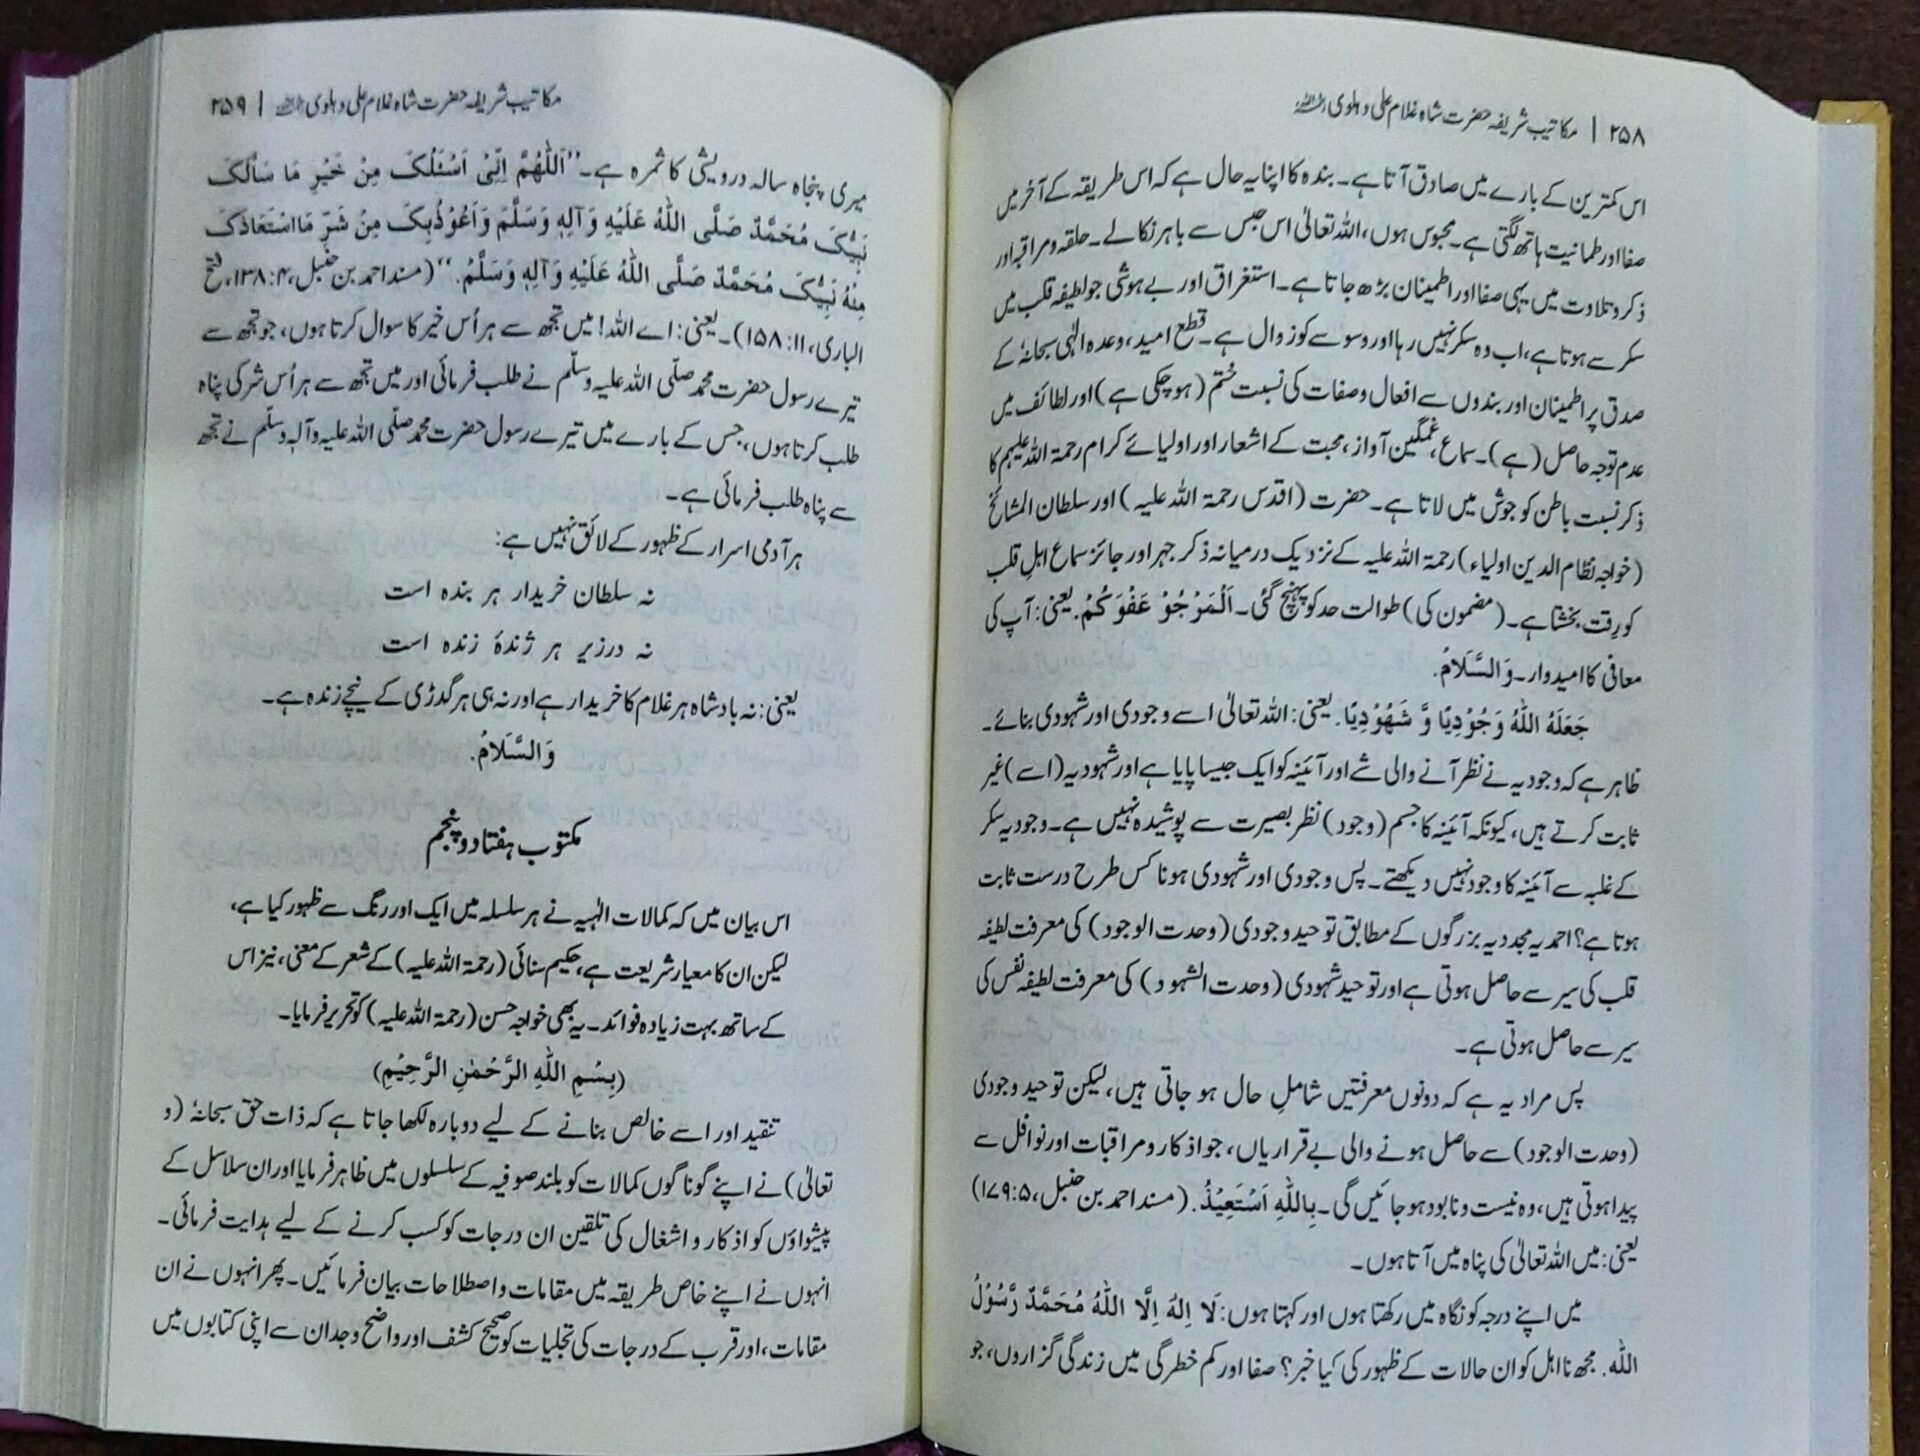 ۲۵۸ | مکاتیب شریفہ حضرت شاہ غلام علی دہلوی رحمۃ اللہ علیہ
اس کمترین کے بارے میں صادق آتا ہے۔ بندہ کا اپنا یہ حال ہے کہ اس طریقہ کے آخر میں
صفا اور طمانیت ہاتھ لگتی ہے۔ محبوس ہوں، اللہ تعالیٰ اس حبس سے باہر نکالے۔ حلقہ و مراقبہ اور
ذکر و تلاوت میں یہی صفا اور اطمینان بڑھ جاتا ہے۔ استغراق اور بے ہوشی جو لطیفہ قلب میں
سکر سے ہوتا ہے، اب وہ سکر نہیں رہا اور وسوسے کو زوال ہے۔ قطع امید، وعدہ الٰہی سبحانہٗ کے
صدق پر اطمینان اور بندوں سے افعال و صفات کی نسبت ختم (ہو چکی ہے) اور لطائف میں
عدم توجہ حاصل (ہے)۔ سماع، غمگین آواز، محبت کے اشعار اور اولیائے کرام رحمۃ اللہ علیہم کا
ذکر نسبت باطن کو جوش میں لاتا ہے۔ حضرت (اقدس رحمۃ اللہ علیہ) اور سلطان المشائخ
(خواجہ نظام الدین اولیاء) رحمۃ اللہ علیہ کے نزدیک درمیانہ ذکر جہر اور جائز سماع اہلِ قلب
کو رِقت بخشتا ہے۔ (مضمون کی) طوالت حد کو پہنچ گئی۔ اَلْمَرْجُوْ عَفْوَکُمْ. یعنی: آپ کی
معافی کا امیدوار۔ وَالسَّلَامُ.
جَعَلَهُ اللّٰهُ وَجُوْدِیًا وَّ شَهُوْدِیًا. یعنی: اللہ تعالیٰ اسے وجودی اور شہودی بنائے۔
ظاہر ہے کہ وجودیہ نے نظر آنے والی شے اور آئینہ کو ایک جیسا پایا ہے اور شہودیہ (اسے) غیر
ثابت کرتے ہیں، کیونکہ آئینہ کا جسم (وجود) نظر بصیرت سے پوشیدہ نہیں ہے۔ وجودیہ سکر
کے غلبہ سے آئینہ کا وجود نہیں دیکھتے۔ پس وجودی اور شہودی ہونا کس طرح درست ثابت
ہوتا ہے؟ احمدیہ مجددیہ بزرگوں کے مطابق توحید وجودی (وحدت الوجود) کی معرفت لطیفہ
قلب کی سیر سے حاصل ہوتی ہے اور توحید شہودی (وحدت الشہود) کی معرفت لطیفہ نفس کی
سیر سے حاصل ہوتی ہے۔
پس مراد یہ ہے کہ دونوں معرفتیں شاملِ حال ہو جاتی ہیں، لیکن توحید وجودی
(وحدت الوجود) سے حاصل ہونے والی بے قراریاں، جو اذکار و مراقبات اور نوافل سے
پیدا ہوتی ہیں، وہ نیست و نابود ہو جائیں گی۔ بِاللّٰهِ اَسْتَعِیْذُ. (مسند احمد بن حنبل، ۵:۱۷۹)
یعنی: میں اللہ تعالیٰ کی پناہ میں آتا ہوں۔
میں اپنے درجہ کو نگاہ میں رکھتا ہوں اور کہتا ہوں: لَا اِلٰهَ اِلَّا اللّٰهُ مُحَمَّدٌ رَّسُوْلُ
اللّٰهِ. مجھ نااہل کو ان حالات کے ظہور کی کیا خبر؟ صفا اور کم خطرگی میں زندگی گزاروں، جو
مکاتیب شریفہ حضرت شاہ غلام علی دہلوی رحمۃ اللہ علیہ | ۲۵۹
میری پنجاہ سالہ درویشی کا ثمرہ ہے۔ ’’اَللّٰهُمَّ اِنِّیْ اَسْئَلُکَ مِنْ خَیْرِ مَا سَأَلَکَ
نَبِیُّکَ مُحَمَّدٌ صَلَّی اللّٰهُ عَلَیْهِ وَآلِهٖ وَسَلَّمَ وَاَعُوْذُبِکَ مِنْ شَرِّ مَا اسْتَعَاذَکَ
مِنْهُ نَبِیُّکَ مُحَمَّدٌ صَلَّی اللّٰهُ عَلَیْهِ وَآلِهٖ وَسَلَّمُ.‘‘ (مسند احمد بن حنبل، ۴:۱۳۸، فتح
الباری، ۱۱:۱۵۸)۔ یعنی: اے اللہ! میں تجھ سے ہر اُس خیر کا سوال کرتا ہوں، جو تجھ سے
تیرے رسول حضرت محمد صلّی اللہ علیہ وسلّم نے طلب فرمائی اور میں تجھ سے ہر اُس شر کی پناہ
طلب کرتا ہوں، جس کے بارے میں تیرے رسول حضرت محمد صلّی اللہ علیہ وآلہٖ وسلّم نے تجھ
سے پناہ طلب فرمائی ہے۔
ہر آدمی اسرار کے ظہور کے لائق نہیں ہے:
نہ سلطان خریدار ہر بندہ است
نہ درزیر ہر ژندۂ زندہ است
یعنی: نہ بادشاہ ہر غلام کا خریدار ہے اور نہ ہی ہر گدڑی کے نیچے زندہ ہے۔
وَالسَّلَامُ.
مکتوب ہفتاد و پنجم
اس بیان میں کہ کمالات الٰہیہ نے ہر سلسلہ میں ایک اور رنگ سے ظہور کیا ہے،
لیکن ان کا معیار شریعت ہے، حکیم سنائی (رحمۃ اللہ علیہ) کے شعر کے معنی، نیز اس
کے ساتھ بہت زیادہ فوائد۔ یہ بھی خواجہ حسن (رحمۃ اللہ علیہ) کو تحریر فرمایا۔
(بِسْمِ اللّٰهِ الرَّحْمٰنِ الرَّحِیْمِ)
تنقید اور اسے خالص بنانے کے لیے دوبارہ لکھا جاتا ہے کہ ذات حق سبحانہٗ (و
تعالیٰ) نے اپنے گوناگوں کمالات کو بلند صوفیہ کے سلسلوں میں ظاہر فرمایا اور ان سلاسل کے
پیشواؤں کو اذکار و اشغال کی تلقین ان درجات کو کسب کرنے کے لیے ہدایت فرمائی۔
انہوں نے اپنے خاص طریقہ میں مقامات و اصطلاحات بیان فرمائیں۔ پھر انہوں نے ان
مقامات، اور قرب کے درجات کی تجلیات کو صحیح کشف اور واضح وجدان سے اپنی کتابوں میں